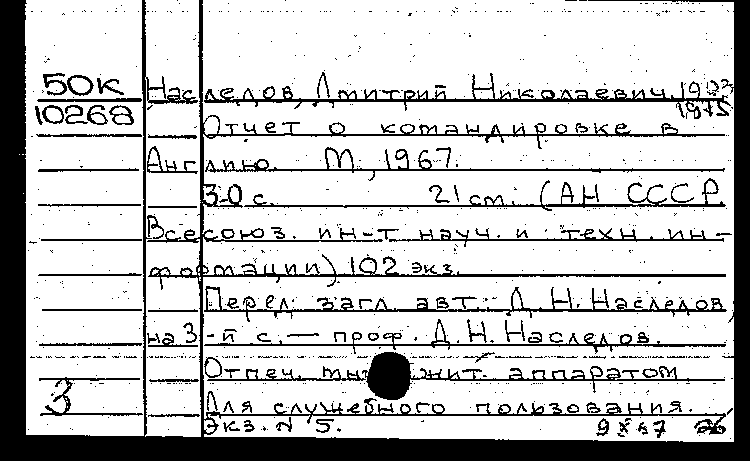 50К
10268
Наследов, Дмитрий Николаевич, 1903
1975
Отчет о командировке в
Англию. М., 1967.
30 с. 21 см. (АН СССР.
Всесоюз. ин-т науч. и техн. ин-
формации) 102 экз.
Перед загл. авт.: Д.Н. Наследов,
на 3-й с. — проф. Д.Н. Наследов.
Отпеч. жит. аппаратом
3
Для служебного пользования.
Экз. N 5. 9 X 67